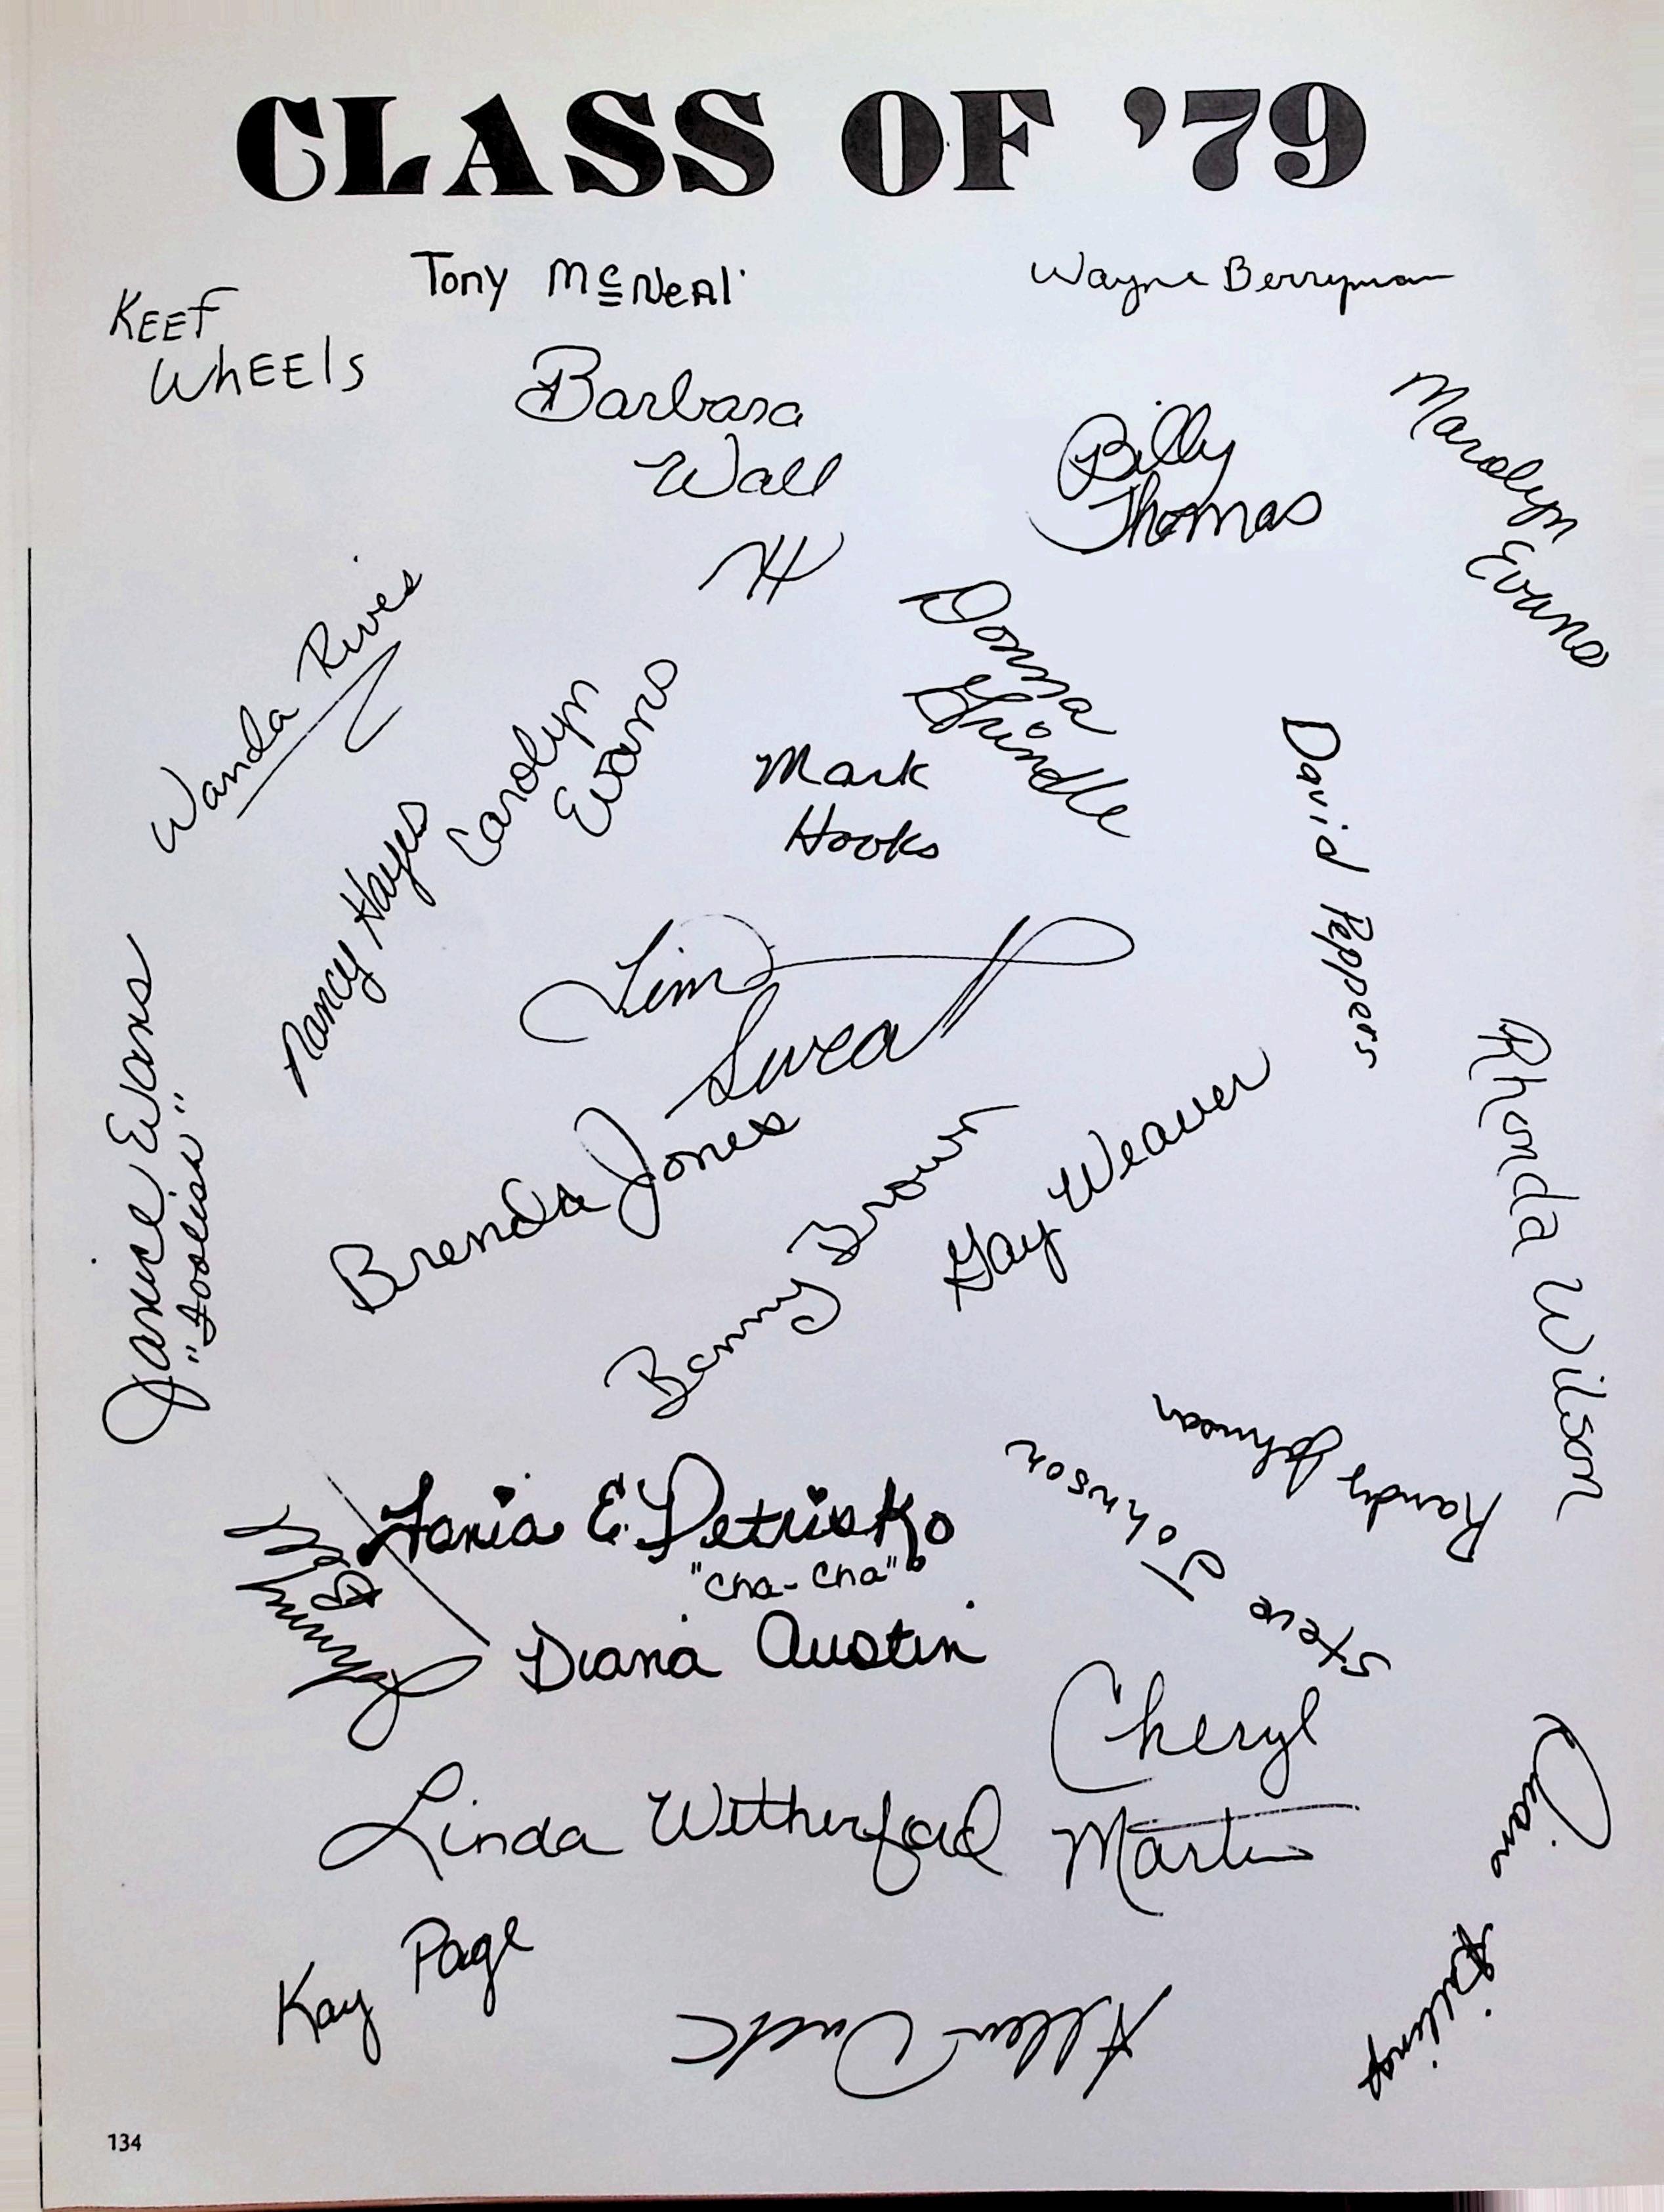 CLASS OF '79
Tony McNeal
Wayne Berryman
KEEF
WhEEls
Barbara
Wall
Billy
Thomas
Marolyn
Evans
Wanda Rives
Donna
Grindle
Carolyn
Evans
Mark
Hooks
David Peppers
Nancy Hayes
Tim
Sweat
Janice Evans
"Foolish"
Rhonda Wilson
Brenda Jones
Benny Brown
Gay Weaver
Randy Johnson
Steve Johnson
Tania E. Petrisko
"Cha-Cha"
Johnny
Diana Austin
Cheryl
Martin
Linda Witherford
Kay Page
Allen
134